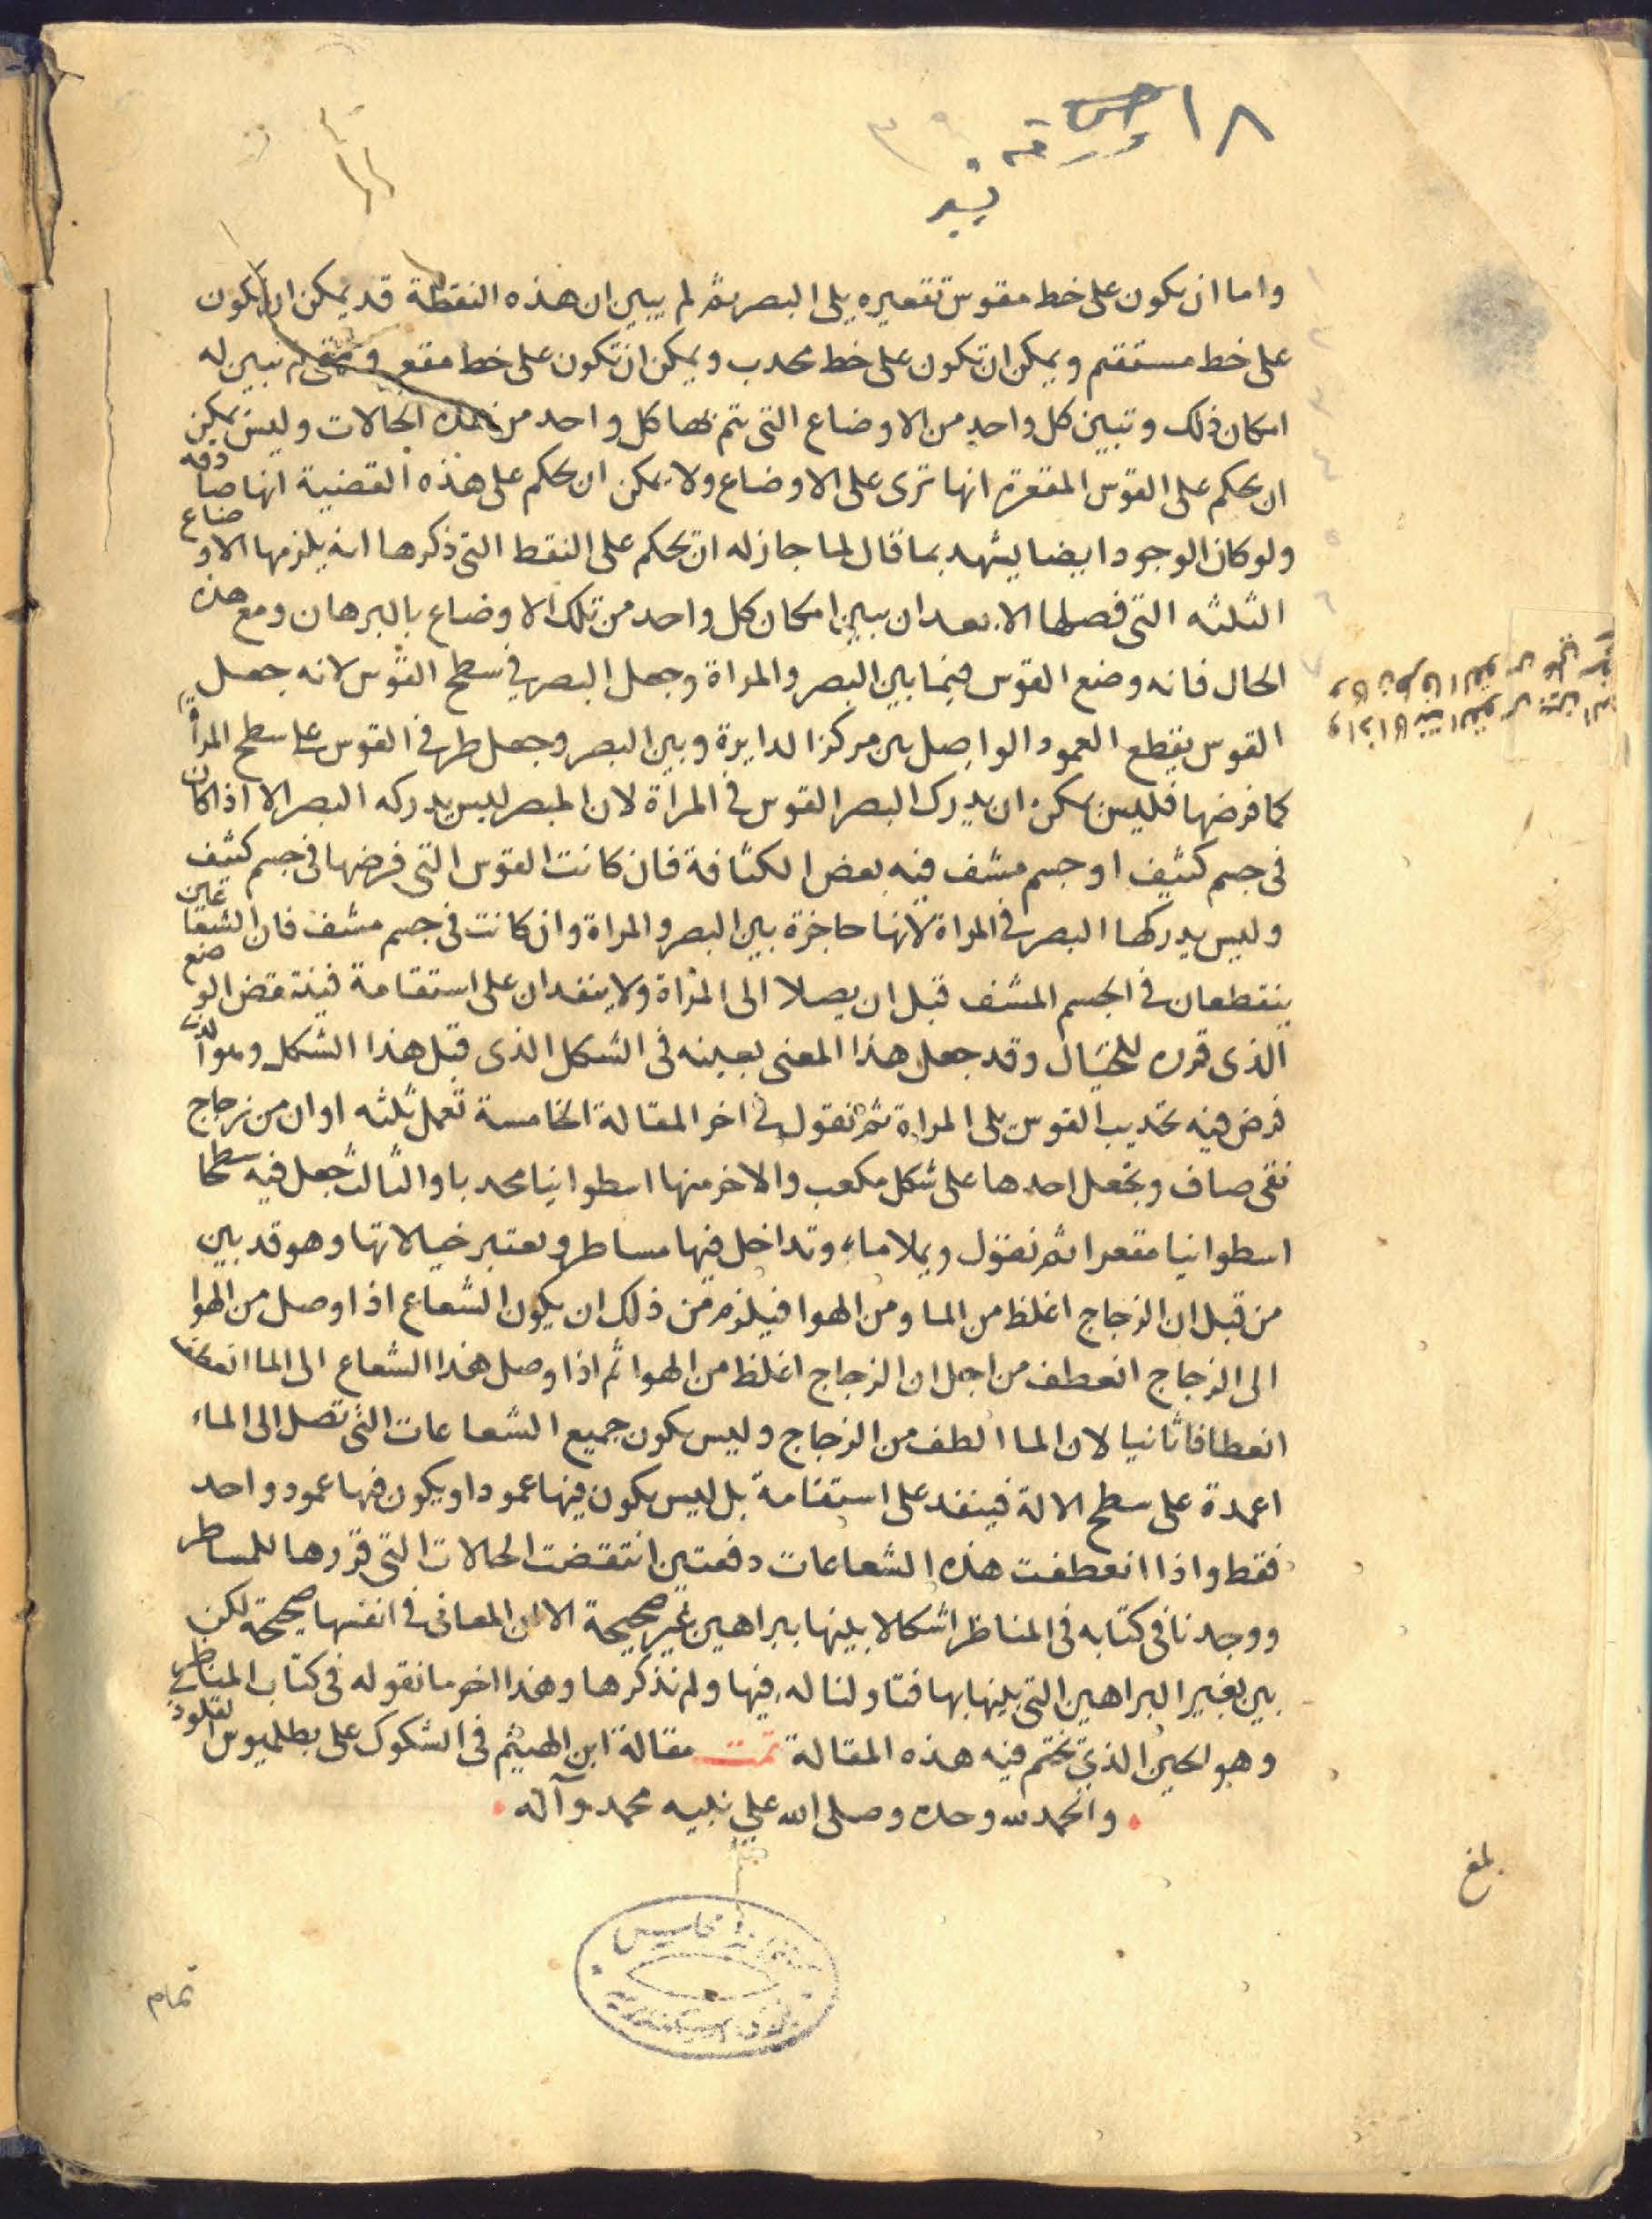 ١٨ ورقة
واما ان يكون على خط مقوس تقعيره يلى البصر ثم لم يبين ان هذه النقطة قد يمكن ان يكون
على خط مستقيم ويمكن ان تكون على خط محدب ويمكن ان تكون على خط مقعر ومتى لم تبين له
امكان ذلك وتبين كل واحد من الاوضاع التى تتم بها كل واحد من هذه الحالات وليس يمكن
ان يحكم على القوس المقعرة انها ترى على الاوضاع ولا يمكن ان يحكم على هذه القضية انها صادقه
ولو كان الوجود ايضا يشهد بما قال لما جاز له ان يحكم على النقط التى ذكرها انه يلزمها الاوضاع
الثلثه التى فصلها الا بعد ان يبين امكان كل واحد من تلك الاوضاع بالبرهان ومع هذه
الحال فانه وضع القوس فيما بين البصر والمراة وجعل البصر في سطح القوس لانه جعل
القوس يقطع العمود الواصل بين مركز الدايرة وبين البصر وجعل طرفى القوس على سطح المراة
كما فرضها فليس يمكن ان يدرك البصر القوس فى المراة لان المبصر ليس يدركه البصر الا اذا كان
فى جسم كثيف او جسم مشف فيه بعض الكثافة فان كانت القوس التى فرضها فى جسم كثيف
وليس يدركها البصر فى المراة لانها حاجزة بين البصر والمراة وان كانت فى جسم مشف فان الشعاعين
ينقطعان فى الجسم المشف قبل ان يصلا الى المراة ولا ينفدان على استقامة فينتقض الوضع
الذى قرره للخيال وقد جعل هذا المعنى بعينه فى الشكل الذى قبل هذا الشكل وهو الذى
فرض فيه تحديب القوس يلى المراة ثم نقول فى اخر المقالة الخامسة تعمل ثلثه اوان من زجاج
نقى صاف ويجعل احدها على شكل مكعب والاخر منها اسطوانيا محدبا والثالث جعل فيه سطحا
اسطوانيا مقعرا ثم نقول ويملا ماء وتداخل فيها مساطر ويعتبر خيالاتها وهو قد بين
من قبل ان الزجاج اغلظ من الما ومن الهوا فيلزم من ذلك ان يكون الشعاع اذا وصل من الهوا
الى الزجاج انعطف من اجل ان الزجاج اغلظ من الهوا ثم اذا وصل هذا الشعاع الى الما انعطف
انعطافا ثانيا لان الما الطف من الزجاج وليس يكون جميع الشعاعات التى تصل الى الماء
اعمدة على سطح الالة فينفد على استقامة بل ليس يكون فيها عمود او يكون فيها عمود واحد
فقط واذا انعطفت هذه الشعاعات دفعتين انتقضت الحالات التى قررها للمساطر
ووجدنا فى كتابه فى المناظر اشكالا بينها ببراهين غير صحيحة الا ان المعانى فى انفسها صحيحة لكن
بين بغير البراهين التى بينها بها فتاولنا له فيها ولم نذكرها وهذا اخر ما نقوله فى كتاب المناظر
وهو الحين الذى نختم فيه هذه المقالة تمت مقالة ابن الهيثم فى الشكوك على بطلميوس القلوذى
والحمد لله وحده وصلى الله على نبيه محمد وآله
بلغ
تمام